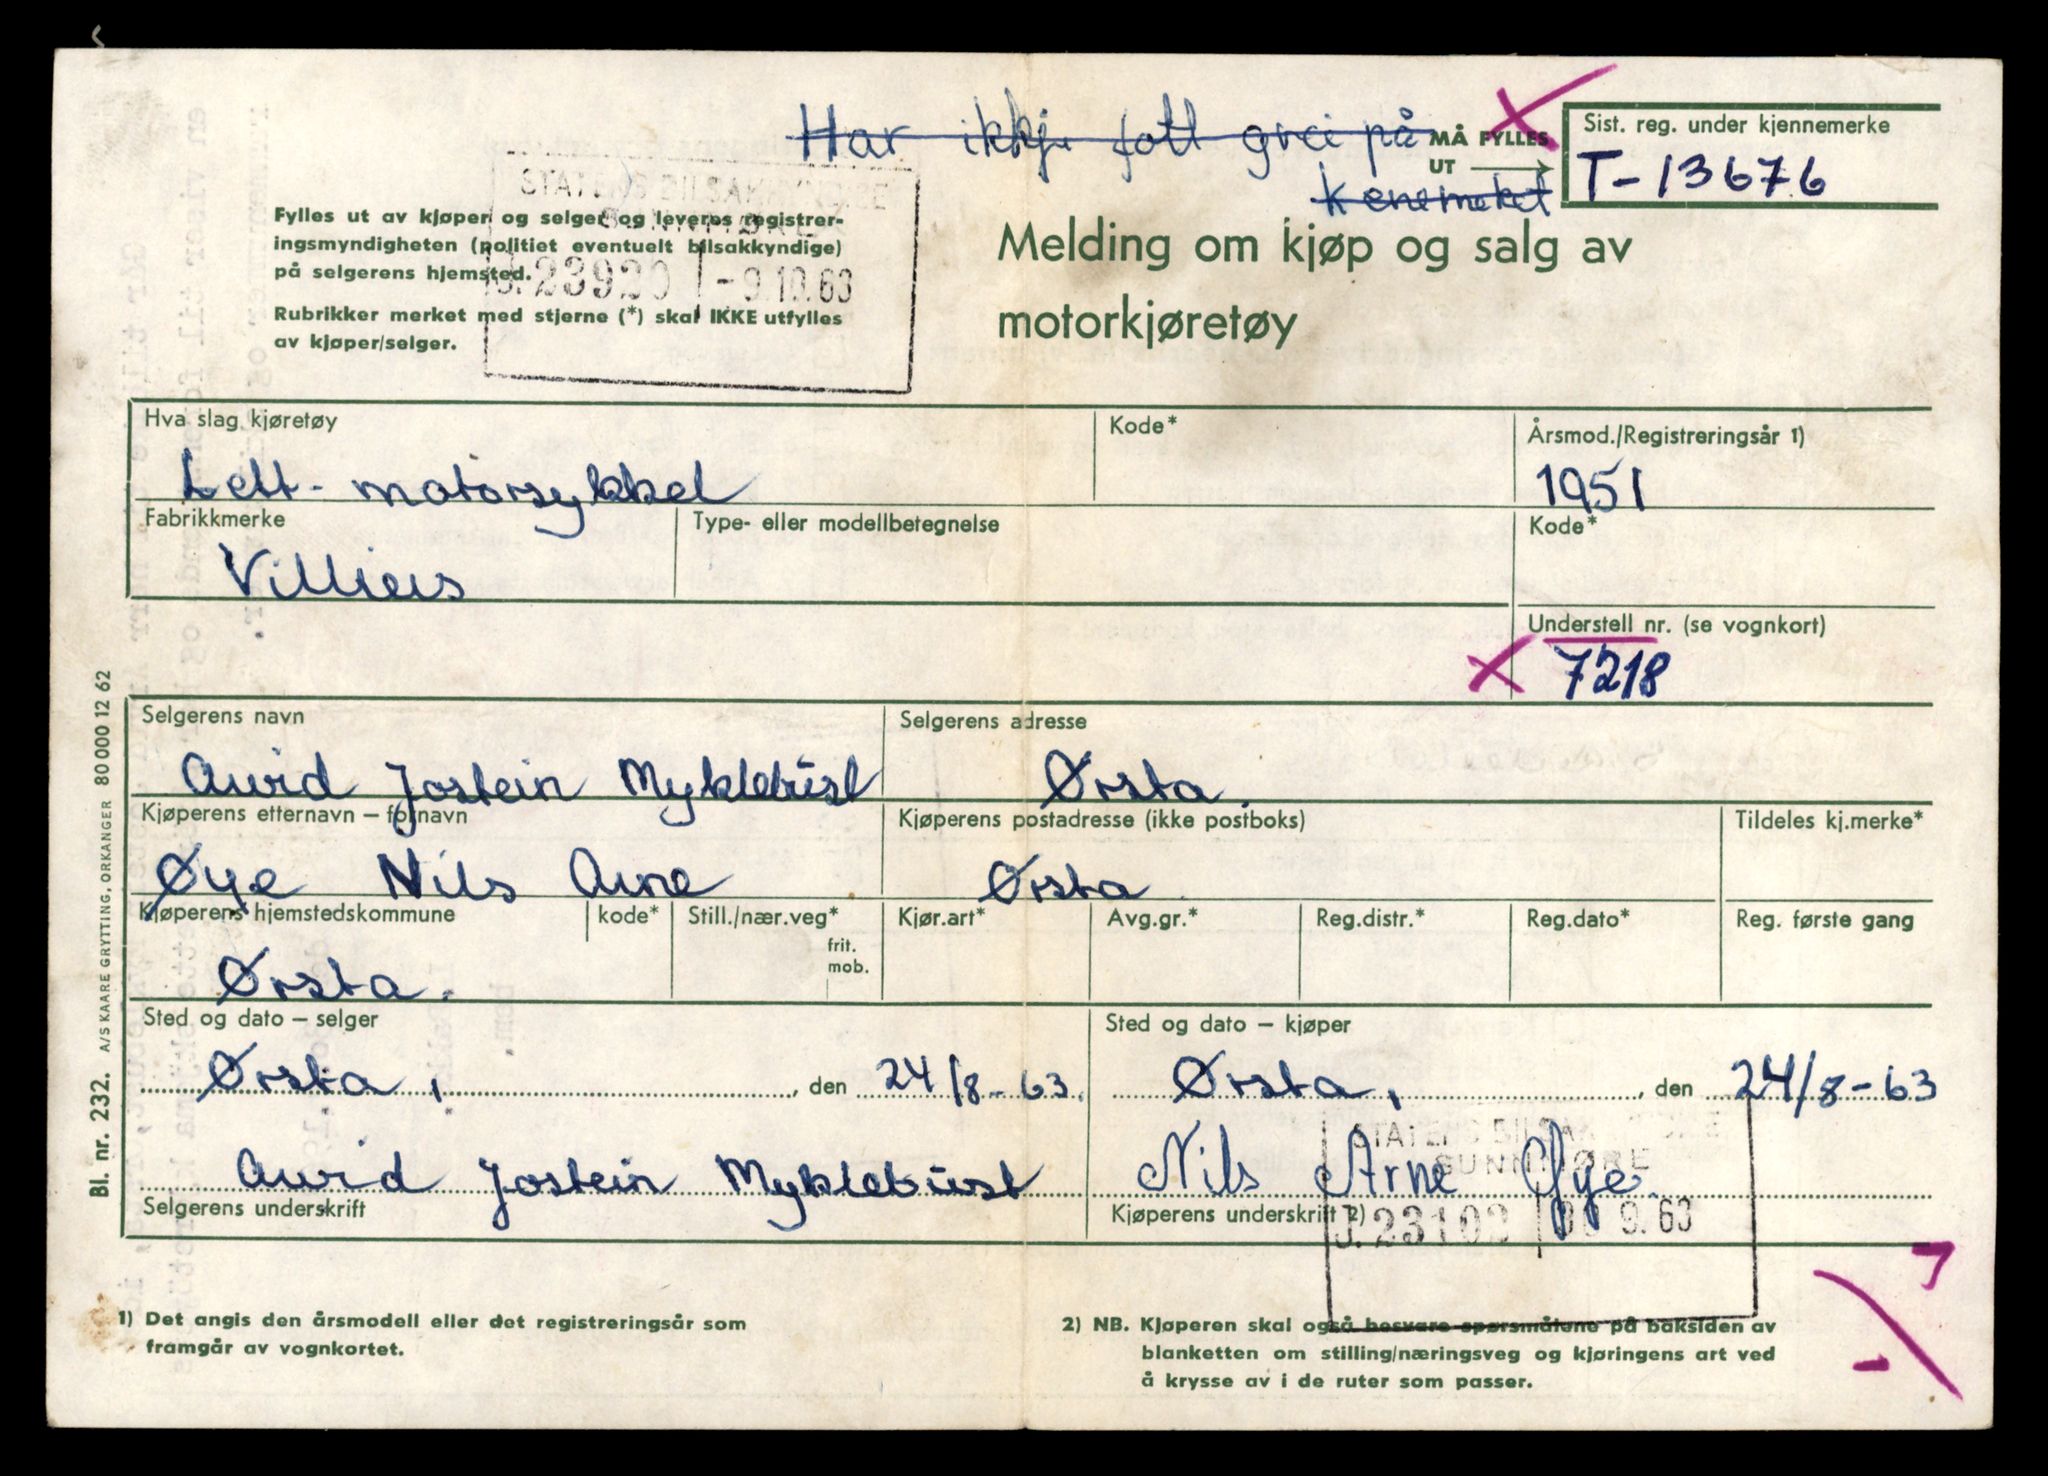 Har ikkje fått grei på
kenemerket
MÅ FYLLES
UT
Sist. reg. under kjennemerke
T-13676
STATENS BILSAKKYNDIGE
SUNNMØRE
J. 23920 - 9.10.63
Fylles ut av kjøper og selger og leveres registrer-
ingsmyndigheten (politiet eventuelt bilsakkyndige)
på selgerens hjemsted.
Rubrikker merket med stjerne (*) skal IKKE utfylles
av kjøper/selger.
Melding om kjøp og salg av
motorkjøretøy
Hva slag kjøretøy
Lett-motorsykkel
Kode*
Årsmod./Registreringsår 1)
1951
Fabrikkmerke
Villiers
Type- eller modellbetegnelse
Kode*
Understell nr. (se vognkort)
7218
Selgerens navn
Arvid Jostein Myklebust
Selgerens adresse
Ørsta.
Kjøperens etternavn – fornavn
Øye Nils Arne
Kjøperens postadresse (ikke postboks)
Ørsta
Tildeles kj.merke*
Kjøperens hjemstedskommune
Ørsta.
kode*
Still./nær.veg*
frit.
mob.
Kjør.art*
Avg.gr.*
Reg.distr.*
Reg.dato*
Reg. første gang
Sted og dato – selger
Ørsta, , den 24/8-63
Arvid Jostein Myklebust
Selgerens underskrift
Sted og dato – kjøper
Ørsta, , den 24/8-63
Nils Arne Øye.
Kjøperens underskrift 2)
STATENS BILSAKKYNDIGE
SUNNMØRE
J. 23102 9.63
1) Det angis den årsmodell eller det registreringsår som
framgår av vognkortet.
2) NB. Kjøperen skal også besvare spørsmålene på baksiden av
blanketten om stilling/næringsveg og kjøringens art ved
å krysse av i de ruter som passer.
Bl. nr. 232. A/S KAARE GRYTTING, ORKANGER 80 000 12 62